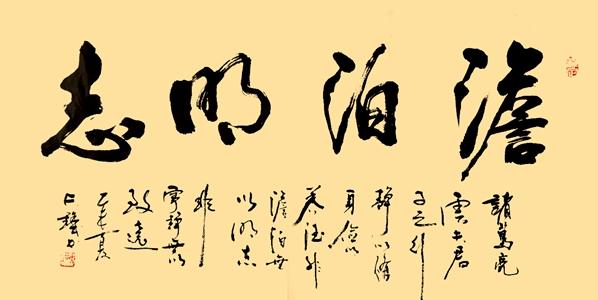 澹泊明志
諸葛亮
雲夫君
子之行
靜以修
身儉以
养德非
澹泊無
以明志
非
寧靜無以
致遠
乙未夏